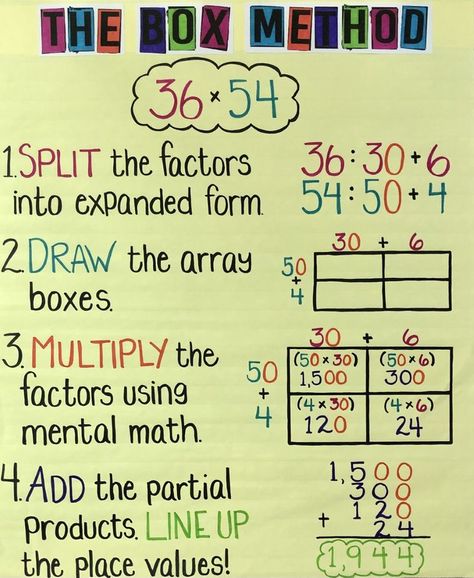 THE BOX METHOD
36 × 54
1. SPLIT the factors
into expanded form.
36: 30 + 6
54: 50 + 4
2. DRAW the array
boxes.
30 + 6
50
+
4
3. MULTIPLY the
factors using
mental math.
30 + 6
50
+
4
(50 × 30) (50 × 6)
1,500 300
(4 × 30) (4 × 6)
120 24
4. ADD the partial
products. LINE UP
the place values!
1,500
300
120
+ 24
1,944